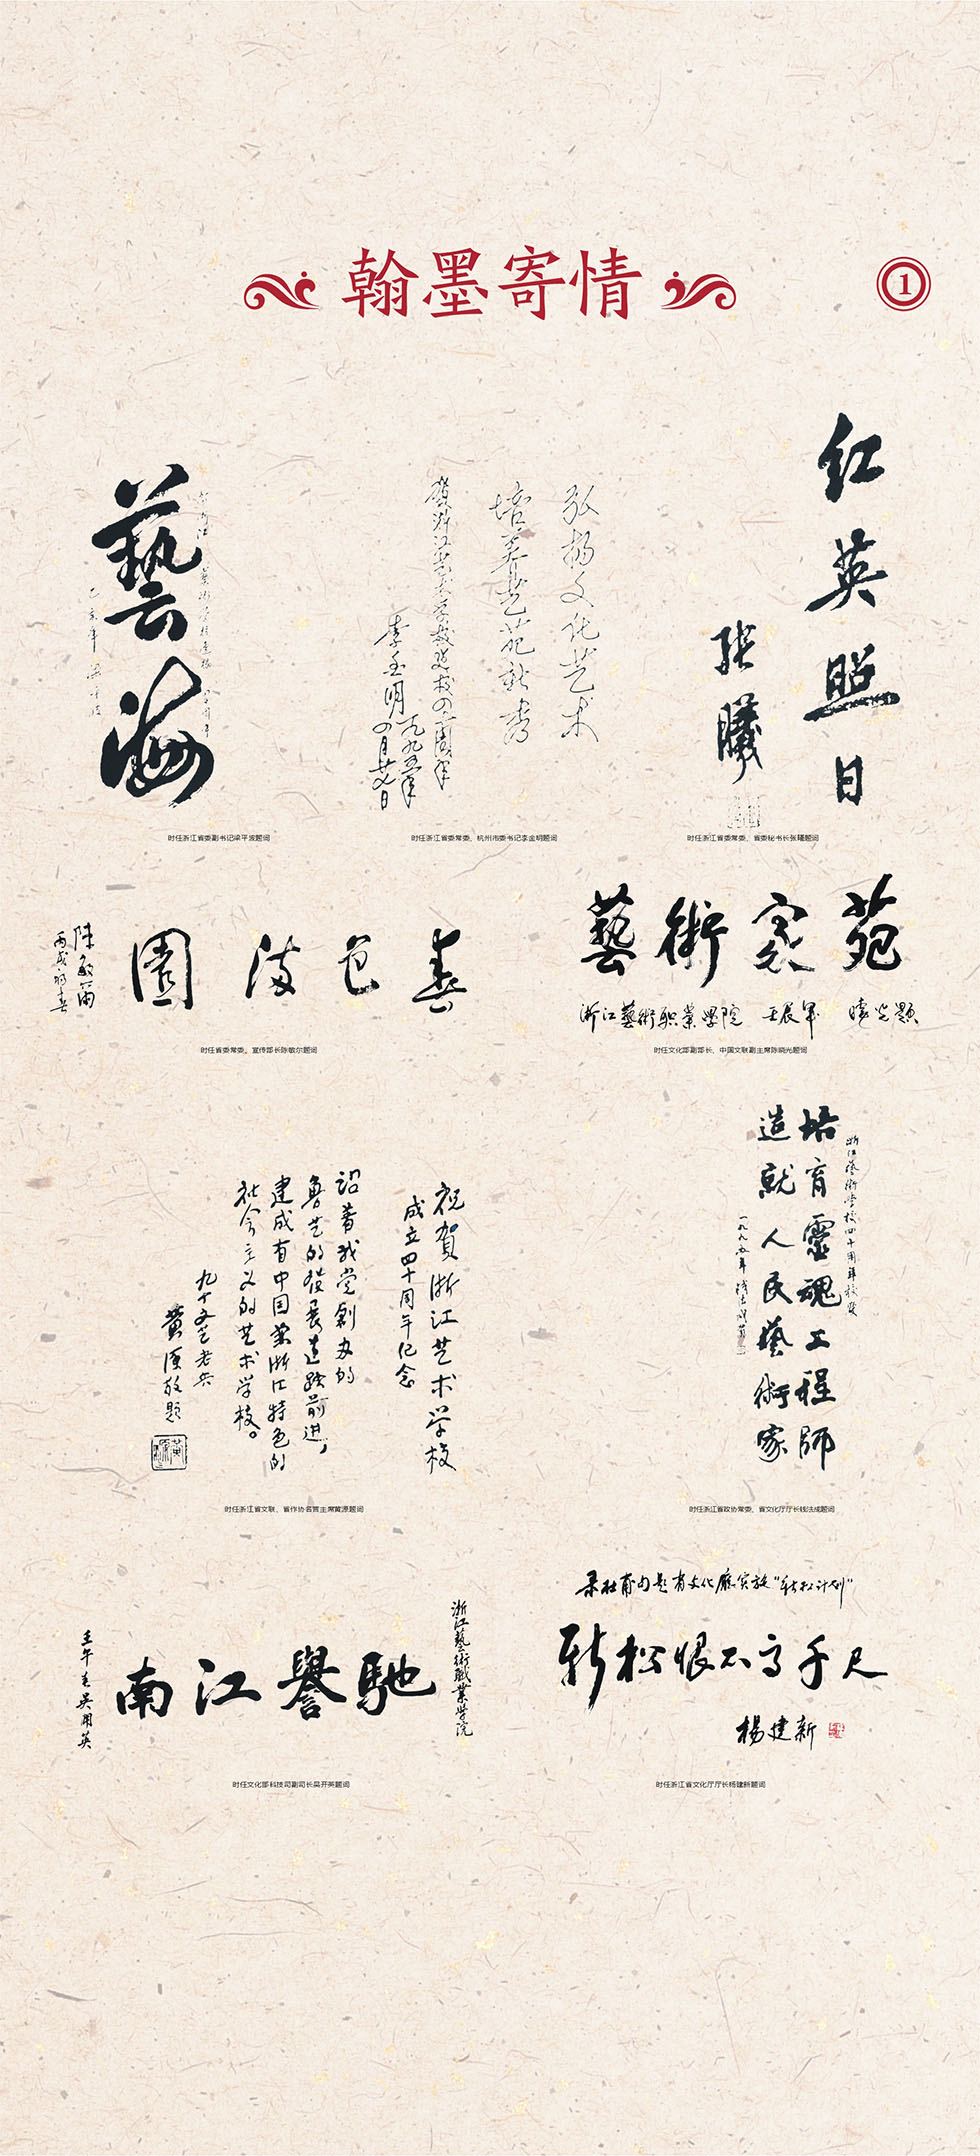 翰墨寄情
1
藝海
乙亥年 梁平波
时任浙江省委副书记梁平波题词
弘扬文化艺术
培养艺苑新秀
贺浙江艺术学校建校四十周年
李金明
一九九五年
四月廿八日
时任浙江省委常委、杭州市委书记李金明题词
红英照日
张曦
时任浙江省委常委、省委秘书长张曦题词
春色满園
陈敏尔
丙戌初春
时任省委常委、宣传部长陈敏尔题词
藝術家苑
浙江藝術职業學院 壬辰年 晓光题
时任文化部副部长、中国文联副主席陈晓光题词
祝賀浙江艺术学校
成立四十周年纪念
沿着我党創办的
鲁艺的發展道路前进，
建成有中国与浙江特色的
社会主义的艺术学校。
九十文艺老兵
黄源敬题
时任浙江省文联、省作协名誉主席黄源题词
浙江藝術学校四十周年校慶
培育靈魂工程師
造就人民藝術家
一九九五年 钱法成
时任浙江省政协常委、省文化厅厅长钱法成题词
浙江藝術職業學院
馳譽江南
壬午冬吴开英
时任文化部科技司副司长吴开英题词
录杜甫句题省文化廳实施“新松计划”
新松恨不高千尺
楊建新
时任浙江省文化厅厅长杨建新题词